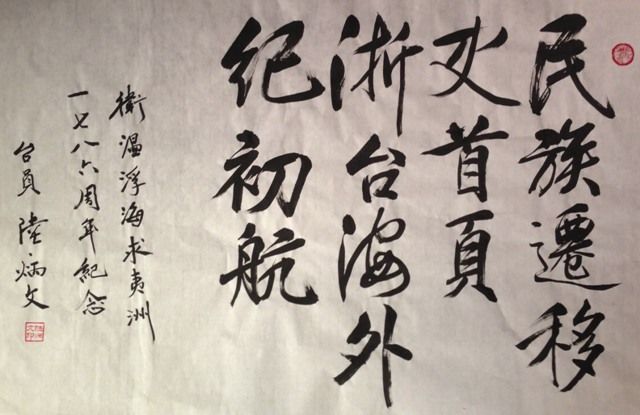 民族遷移
史首頁
浙台海外
紀初航
衛温浮海求夷洲
一七八六周年紀念
台員 陸炳文